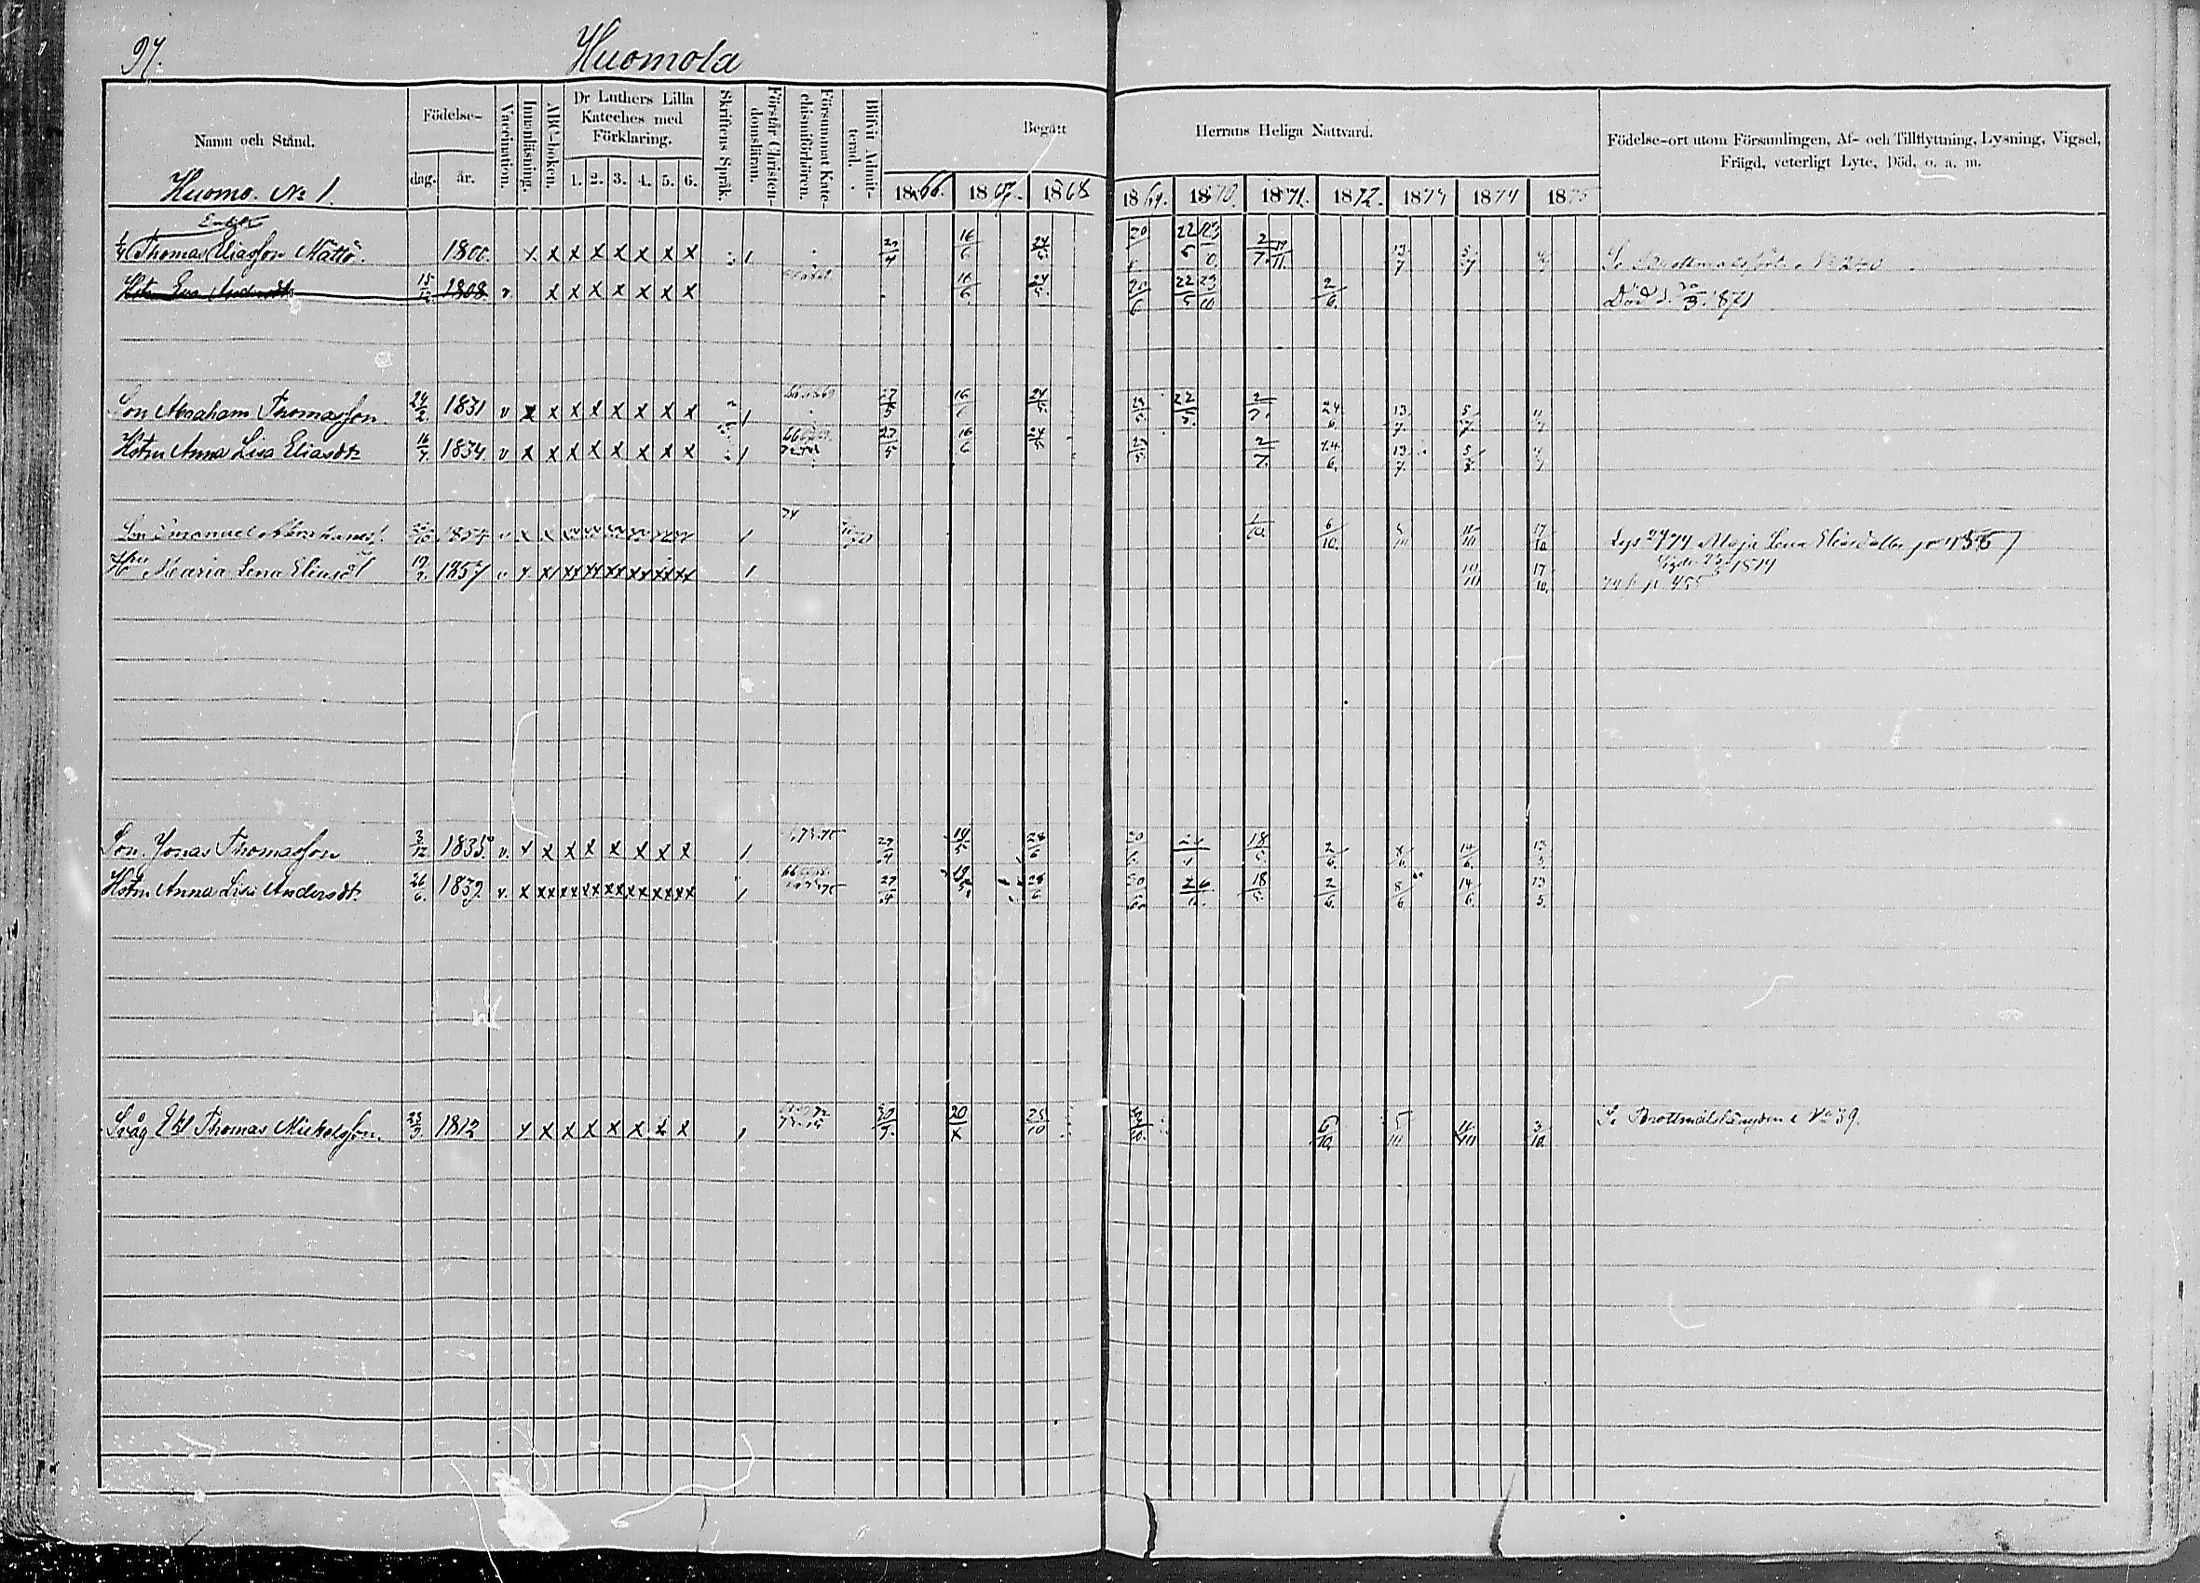 97.
Huomola
Namn och Stånd.
Födelse-
dag. år.
Vaccination.
Innanläsning.
ABC-boken.
Dr Luthers Lilla Kateches med Förklaring.
1. 2. 3. 4. 5. 6.
Skriftens Språk.
Förstår Christen-domsläran.
Försummat Kate-chismiförhören.
Blifvit Admit-terad.
Begått Herrans Heliga Nattvard.
1866. 1867. 1868 1869. 1870. 1871. 1872. 1873 1874 1875
Födelse-ort utom Församlingen, Af- och Tillflyttning, Lysning, Vigsel,
Frägd, veterligt Lyte, Död, o. a. m.
Huomo. No 1.
Enkl
1/4 Thomas Eliasson Nättö. 1800. x x x x x x x x 27/4 16/6 24/5 20/6 22/5 2/7 13/7 5/7
Hstr Eva Andersdt 15/12 1808 v x x x x x x x 16/6 24/5 20/6 22/5 23/10 2/6 Död d. 20/3 1871
Son Abraham Thomasson 24/2 1831 v x x x x x x x x 1 27/5 16/6 24/5 23/5 22/5 2/7 24/6 13/7 5/7
Hstru Anna Lisa Eliasdtr 16/7 1834. v x x x x x x x x 1 27/5 16/6 24/5 23/5 2/7 24/6 13/7 5/7
Son Emanuel Abrahamss. 1854 v x x 1 74 1/10 6/10 5/10 11/10 17/10 Lys 2474 Maja Lena Eliasdotter
Hru Maria Lena Eliasd 19/2 1857 v x x xx xx xx xx xx xx 1 10/10 17/10 Vigde 1874
Son Jonas Thomasson 3/12 1835 v. x x x x x x x x 1 73.75 27/4 19/5 28/6 20/6 18/5 2/6 8/6 14/6 13/5
Hstru Anna Lisa Andersdt. 26/6 1839. v. x xx xx xx xx xx xx xx 1 27/4 19/5 28/6 20/6 26 18/5 2/6 8/6 14/6 13/5
Svåg Ekl Thomas Mickelsson. 23/9 1812 x x x x x x x x 1 30/9 20/x 25/10 6/10 5/10 11/10 3/10 Se Brottmålslängden No 39.